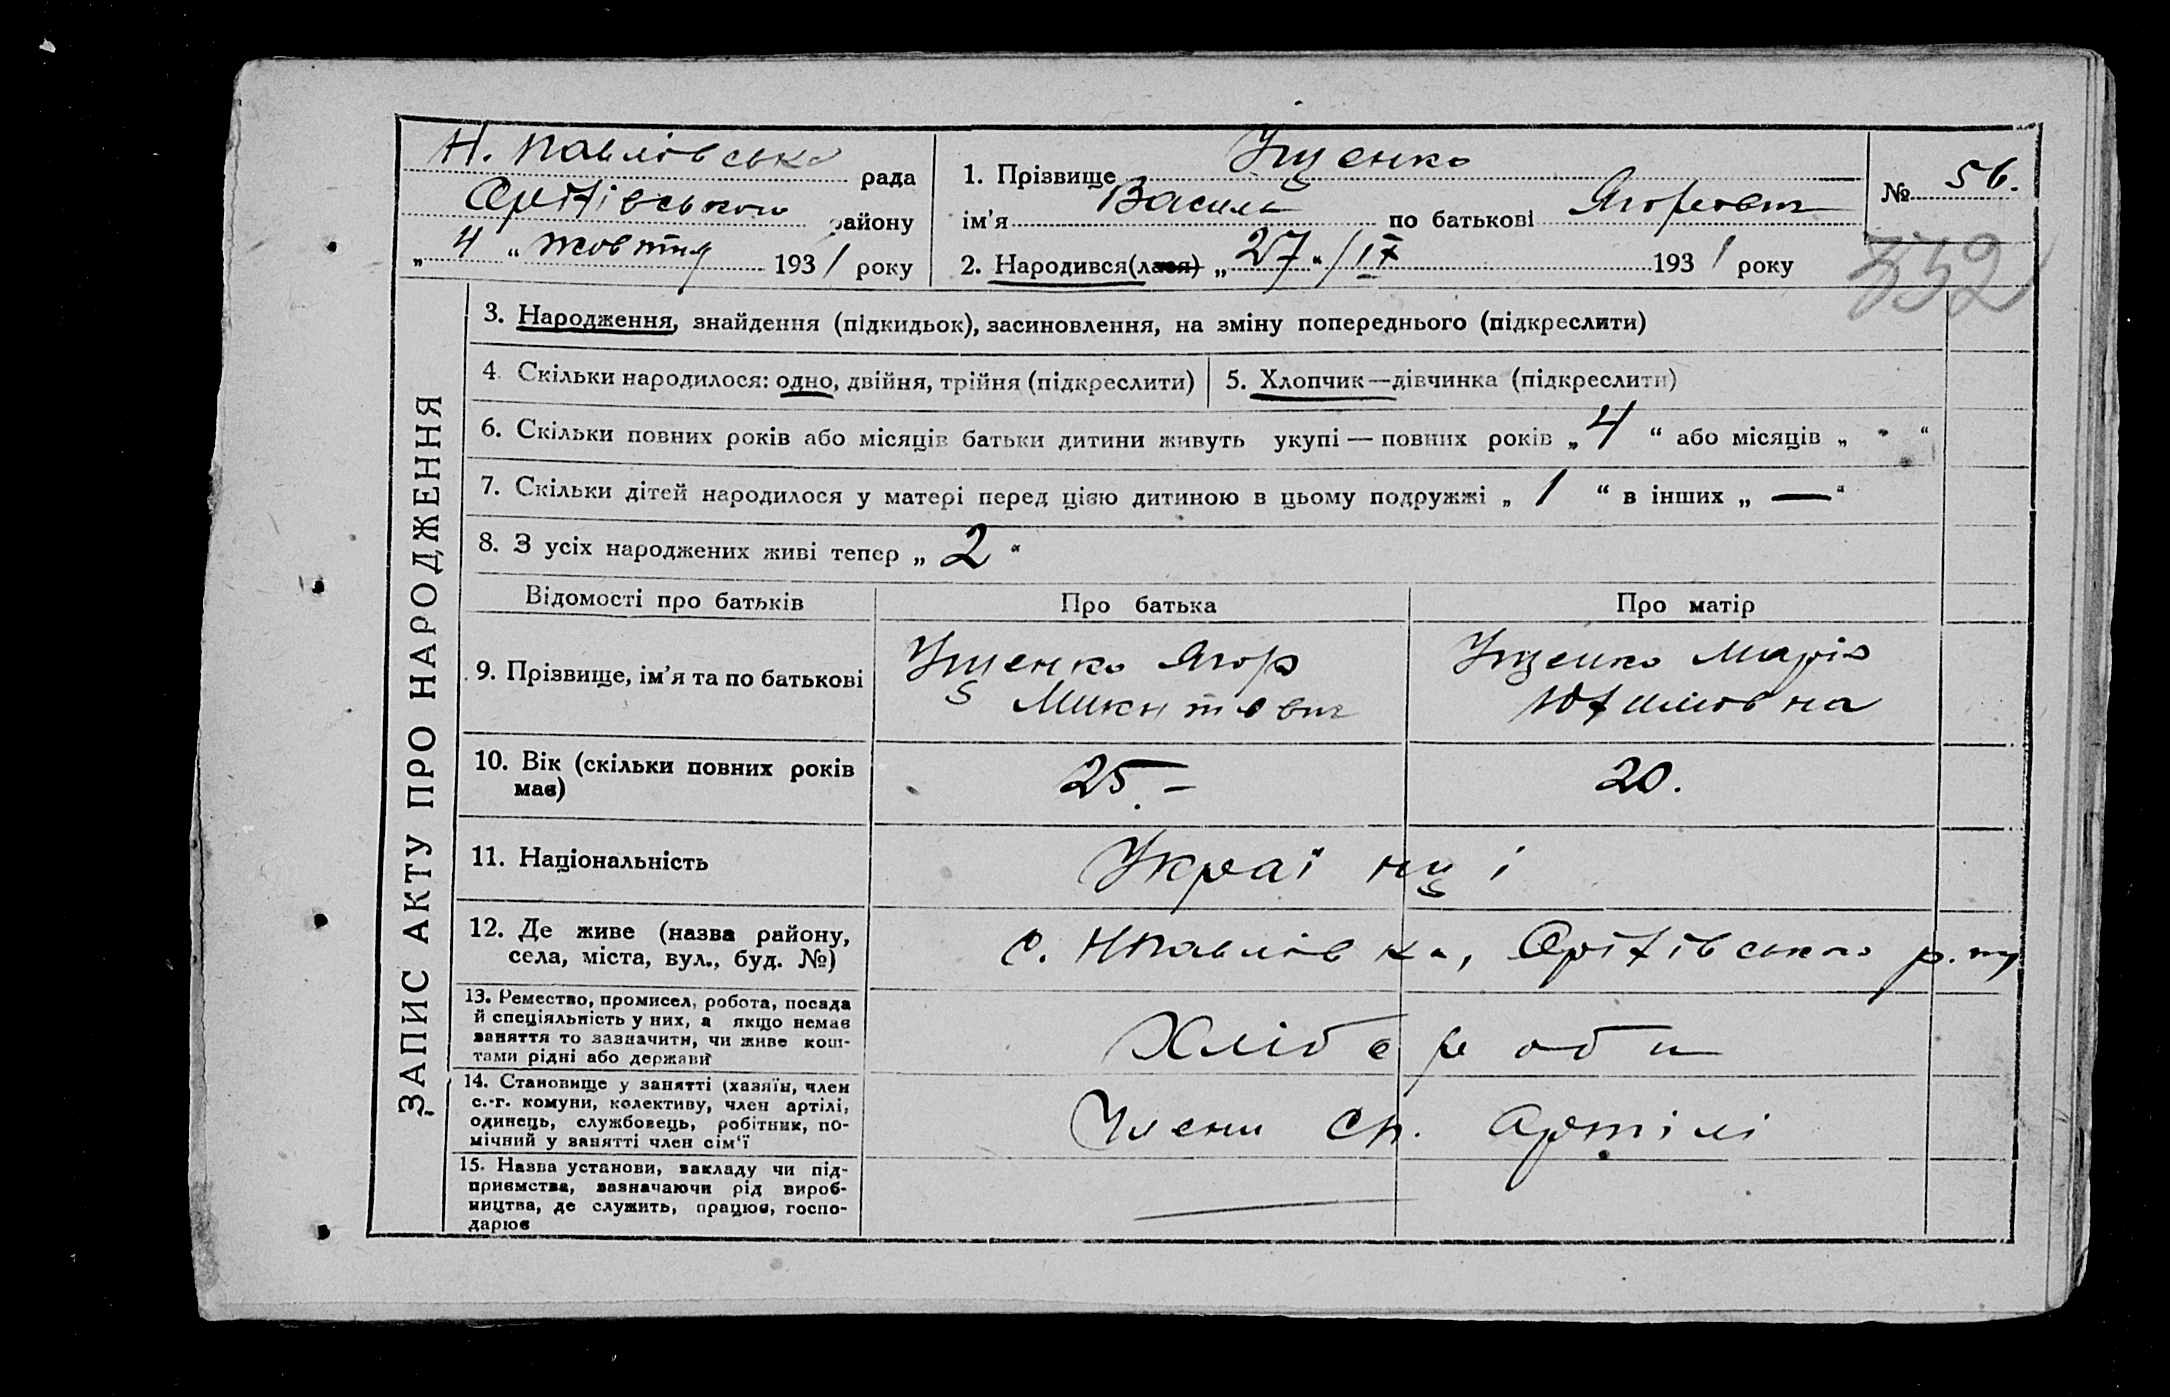 Н. Павлівська рада
Оріхівського району
„ 4 “ жовтня 1931 року
1. Прізвище Ущенко
ім’я Василь по батькові Ягорович
2. Народився(лася) „ 27 “ / IX 1931 року
№ 56.
352
ЗАПИС АКТУ ПРО НАРОДЖЕННЯ
3. Народження, знайдення (підкидьок), засиновлення, на зміну попереднього (підкреслити)
4. Скільки народилося: одно, двійня, трійня (підкреслити)
5. Хлопчик—дівчинка (підкреслити)
6. Скільки повних років або місяців батьки дитини живуть укупі — повних років „ 4 “ або місяців „ - “
7. Скільки дітей народилося у матері перед цією дитиною в цьому подружжі „ 1 “ в інших „ — “
8. З усіх народжених живі тепер „ 2 “
Відомості про батьків Про батька Про матір
9. Прізвище, ім’я та по батькові
Ущенко Ягор
Микитович
Ущенко Марія
Юхимовна
10. Вік (скільки повних років
має)
25.-
20.
11. Національність
Українці
12. Де живе (назва району,
села, міста, вул., буд. №)
с. Нпавлівка, Оріхівського р.ну
13. Ремество, промисел, робота, посада
й спеціяльність у них, а якщо немає
заняття то зазначити, чи живе кош-
тами рідні або держави
Хлібороби
14. Становище у занятті (хазяїн, член
с.-г. комуни, колективу, член артілі,
одинець, службовець, робітник, по-
мічний у занятті член сім‘ї
Члени сг. артілі
15. Назва установи, закладу чи під-
приємства, зазначаючи рід вироб-
ництва, де служить, працює, госпо-
дарює